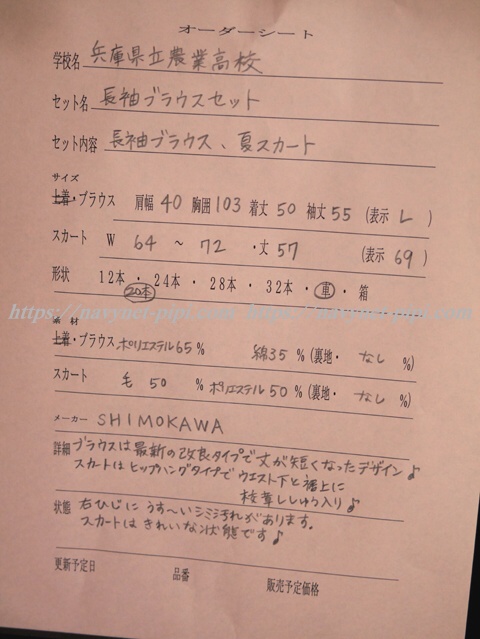 オーダーシート
学校名 兵庫県立農業高校
セット名 長袖ブラウスセット
セット内容 長袖ブラウス、夏スカート
サイズ
上着・ブラウス 肩幅 40 胸囲 103 着丈 50 袖丈 55 (表示 L )
スカート W 64 〜 72 ・丈 57 (表示 69 )
形状 12本 ・ 24本 ・ 28本 ・ 32本 ・ 車 ・ 箱
20本
https://navynet-pipi.com/ https://navynet-pipi.com/
素材
上着・ブラウス ポリエステル 65 % 綿 35 % (裏地・ なし %)
スカート 毛 50 % ポリエステル 50 % (裏地・ なし %)
メーカー SHIMOKAWA
詳細 ブラウスは最新の改良タイプで丈が短くなったデザイン♪
スカートはヒップハングタイプでウエスト下と裾上に
校章ししゅう入り♪
状態 右ひじにうす〜いシミ汚れがあります。
スカートはきれいな状態です♪
更新予定日 品番 販売予定価格